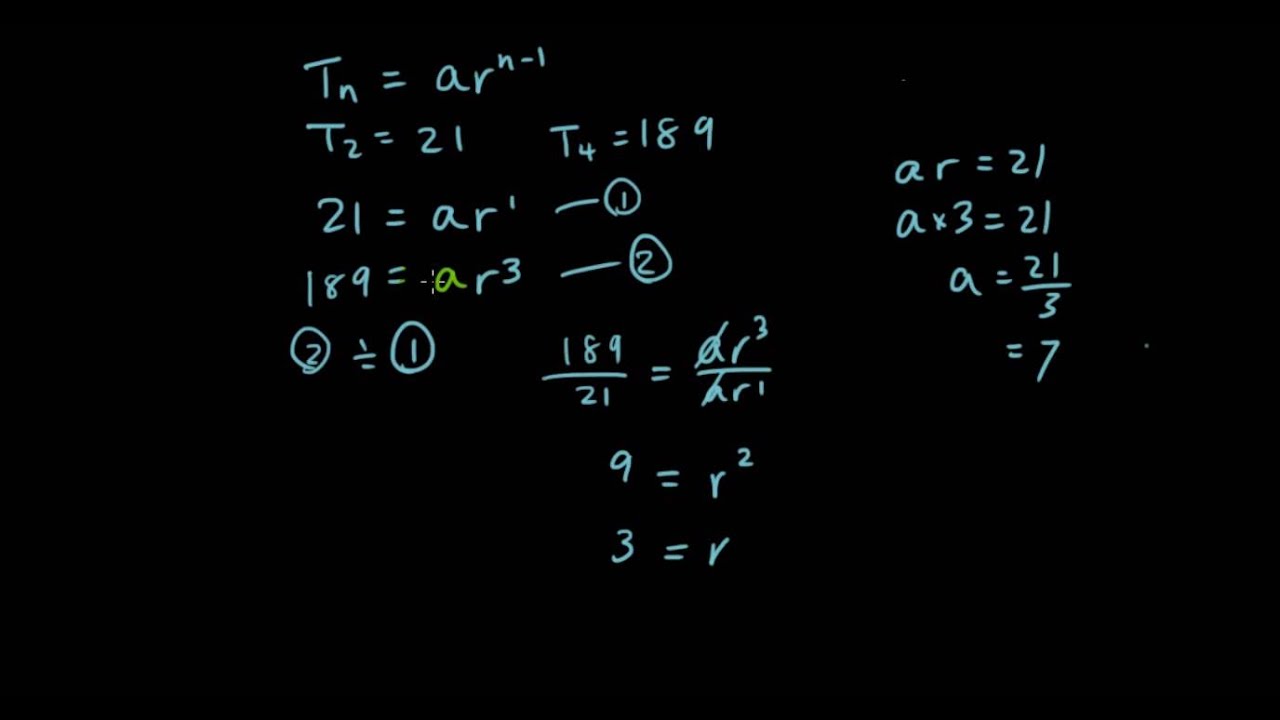 Tn = arⁿ⁻¹
T₂ = 21 T₄ = 189
21 = ar¹ — ①
189 = ar³ — ②
② ÷ ①
189/21 = ar³/ar¹
9 = r²
3 = r
ar = 21
a × 3 = 21
a = 21/3
= 7